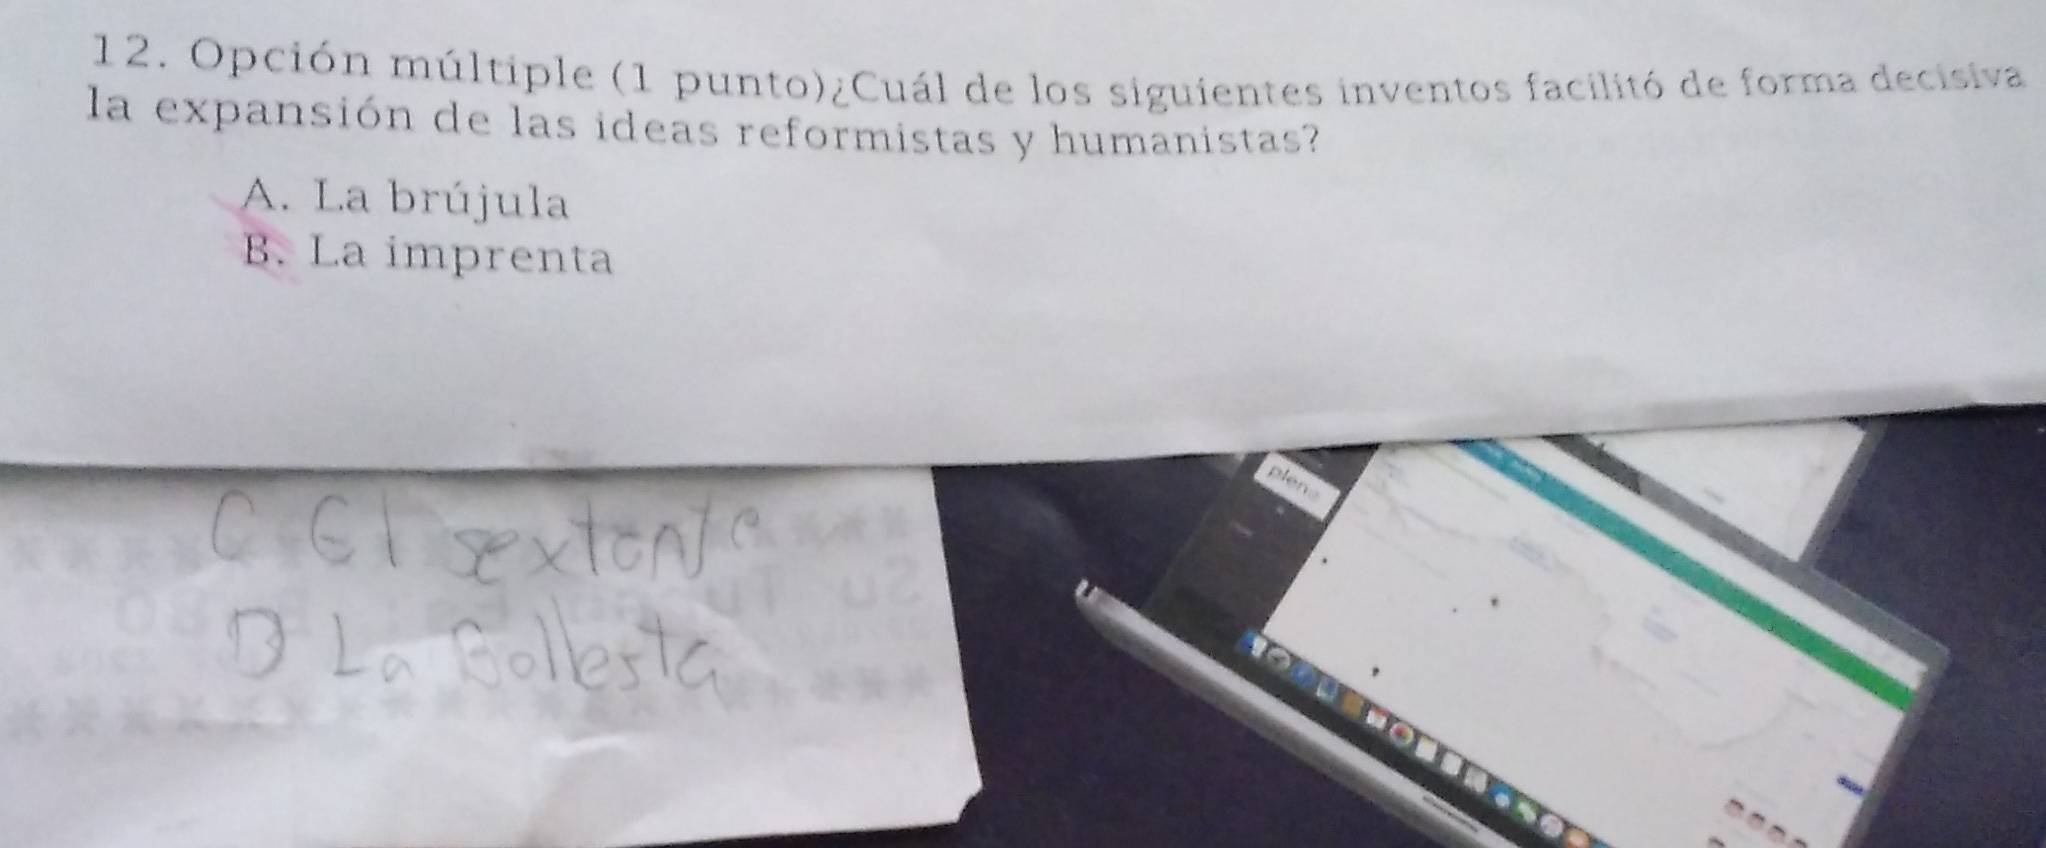 12. Opción múltiple (1 punto)¿Cuál de los siguientes inventos facilitó de forma decisiva
la expansión de las ideas reformistas y humanistas?
A. La brújula
B. La imprenta
C El sextante
D La Ballesta
plena